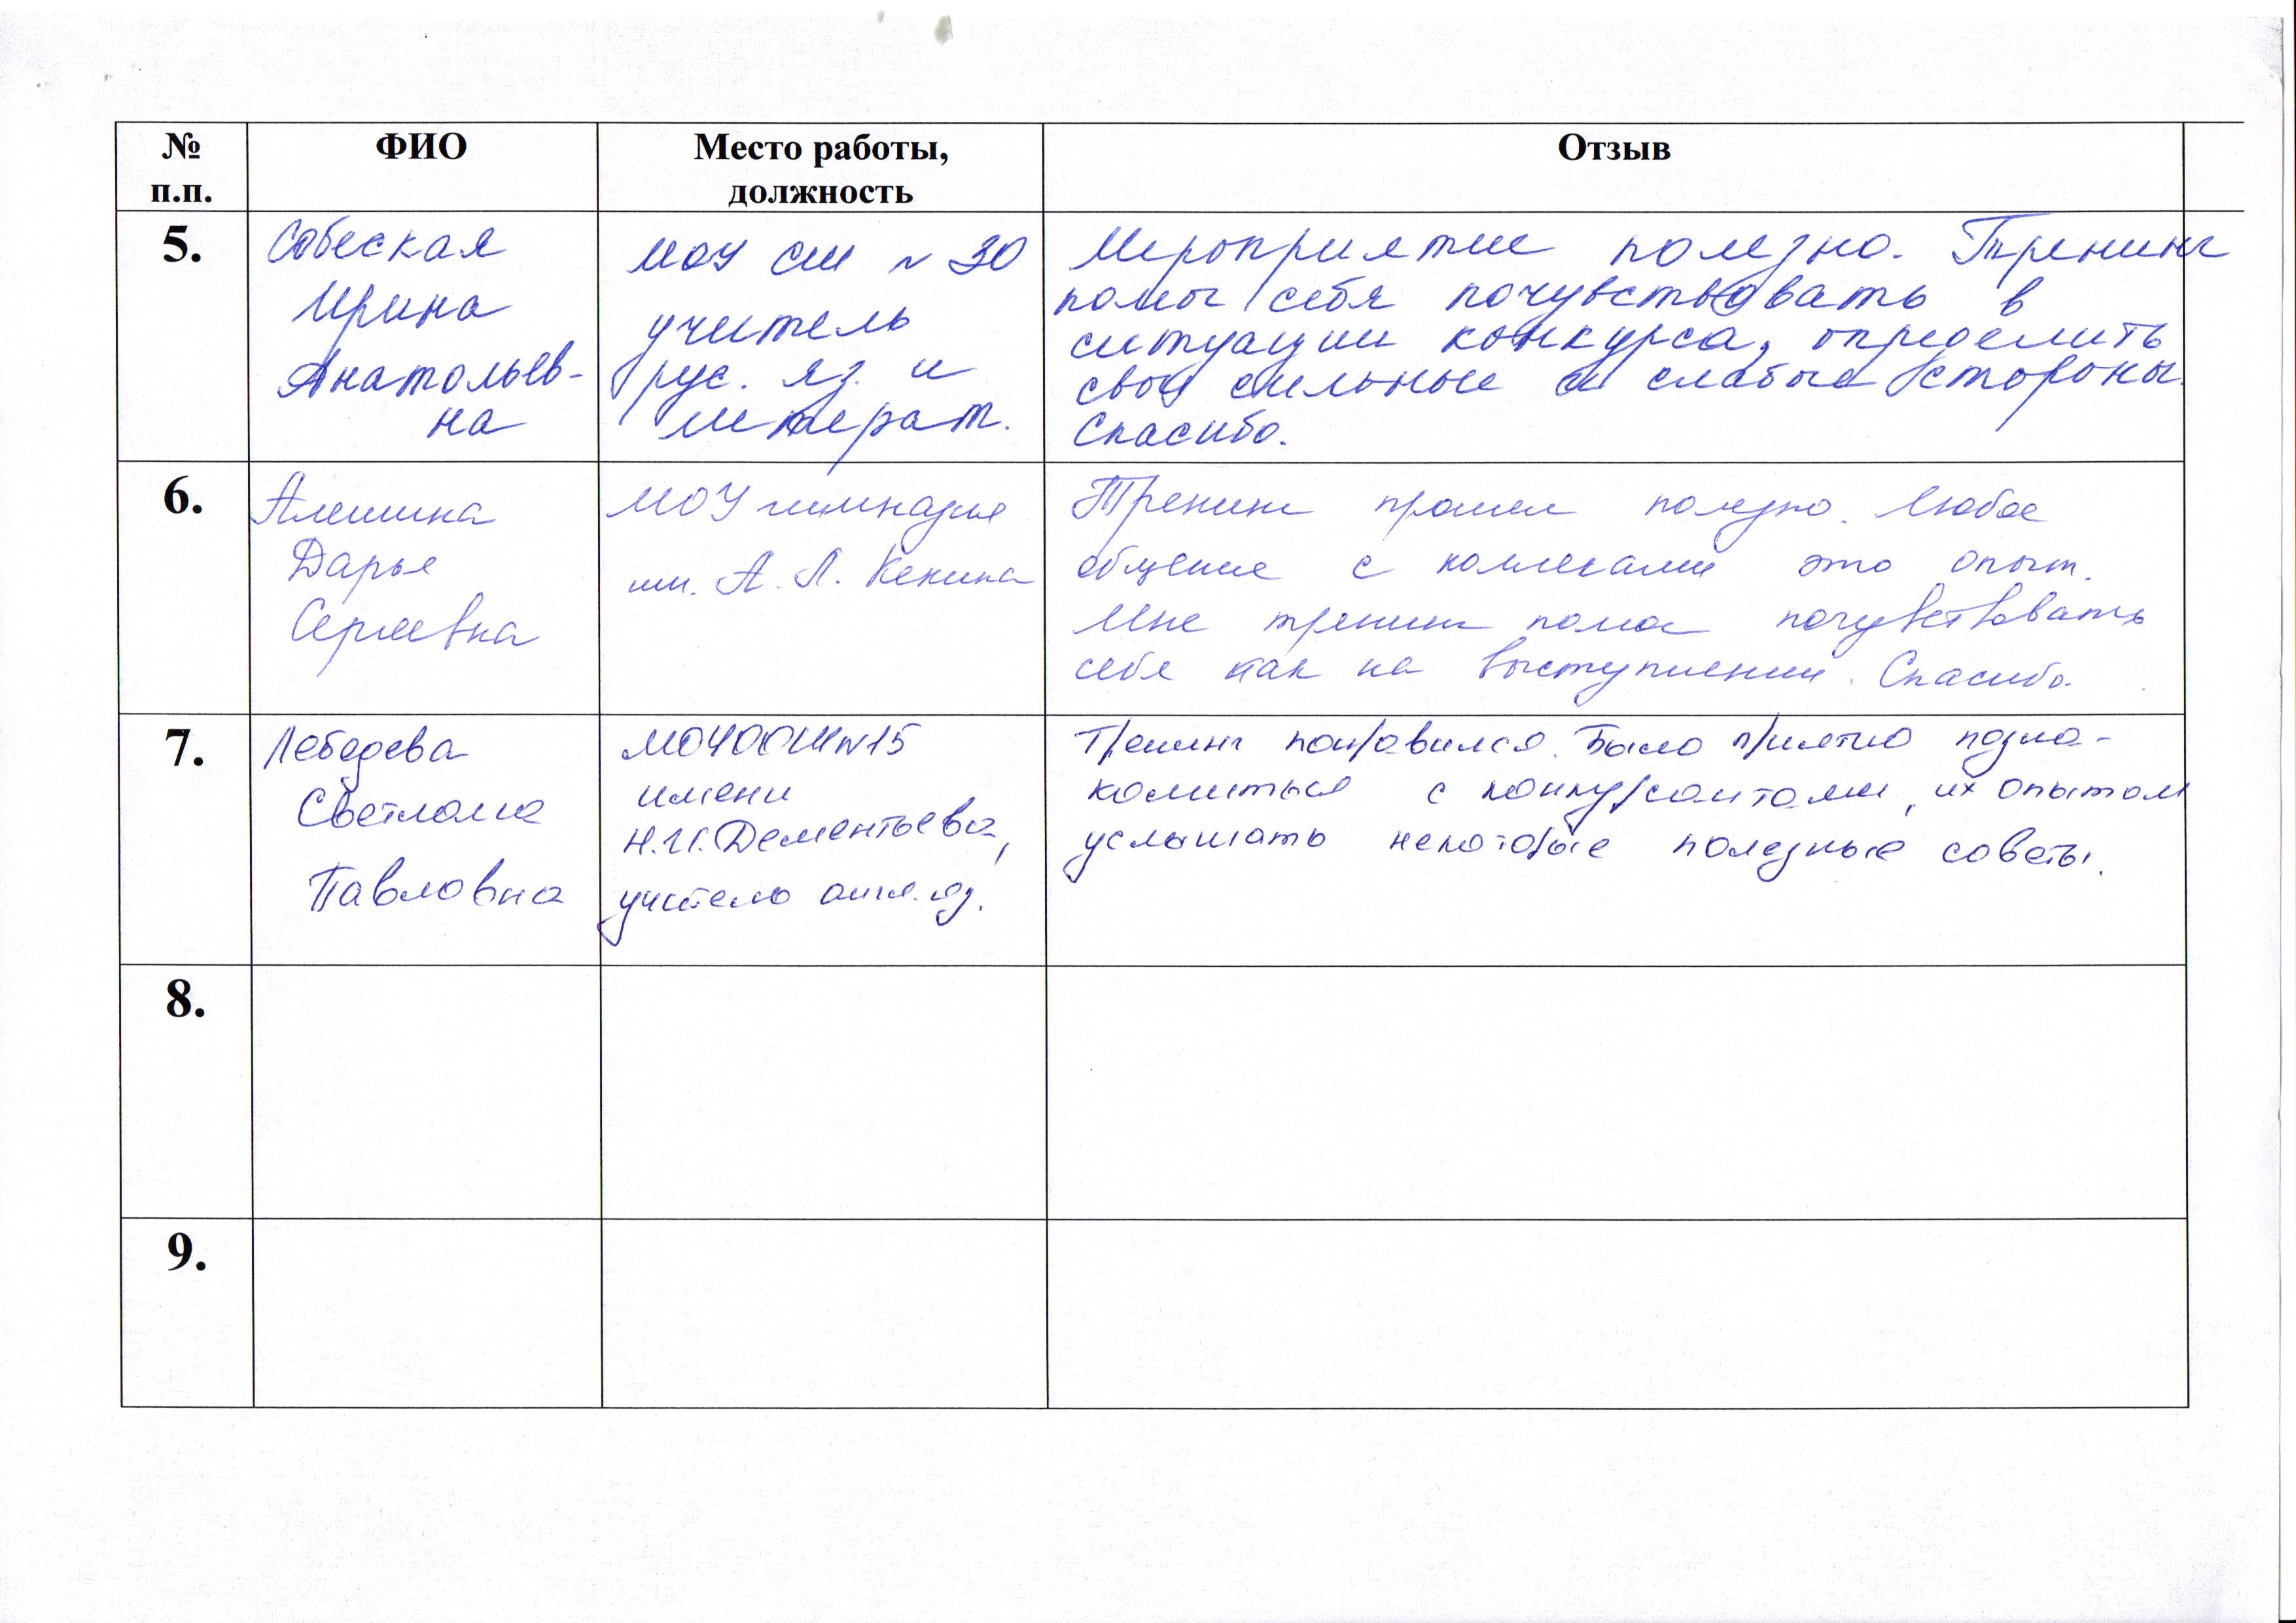 № п.п. ФИО Место работы, должность Отзыв
5.
Собеская
Ирина
Анатольев-
на
МОУ СШ № 30
учитель
рус. яз. и
литерат.
Мероприятие полезно. Тренинг
помог себя почувствовать в
ситуации конкурса, определить
свои сильные и слабые стороны.
Спасибо.
6.
Алешина
Дарья
Сергеевна
МОУ гимназия
им. А. Л. Кекина
Тренинг прошел полезно. Любое
общение с коллегами это опыт.
Мне тренинг помог почувствовать
себя как на выступлении. Спасибо.
7.
Лебедева
Светлана
Павловна
МОУООШ№15
имени
Н.И. Дементьева,
учитель англ. яз.
Тренинг понравился. Было приятно позна-
комиться с конкурсантами, их опытом
услышать некоторые полезные советы.
8.
9.